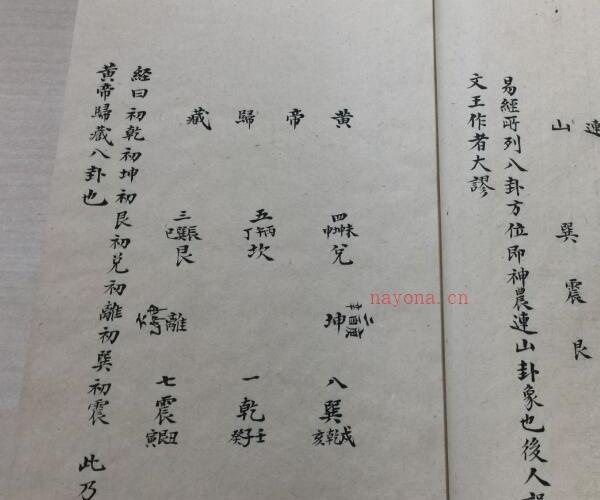 連山
巽震艮
易經所列八卦方位即神農連山卦象也後人
文王作者大謬
黃帝歸藏
四未坤申兌
五丙午丁坎
三辰巽巳艮
二庚酉辛坤
離
八巽戌乾亥
一乾壬子癸
七震丑艮寅
經曰初乾初坤初艮初兌初離初巽初震 此乃
黃帝歸藏八卦也
nayona.cn